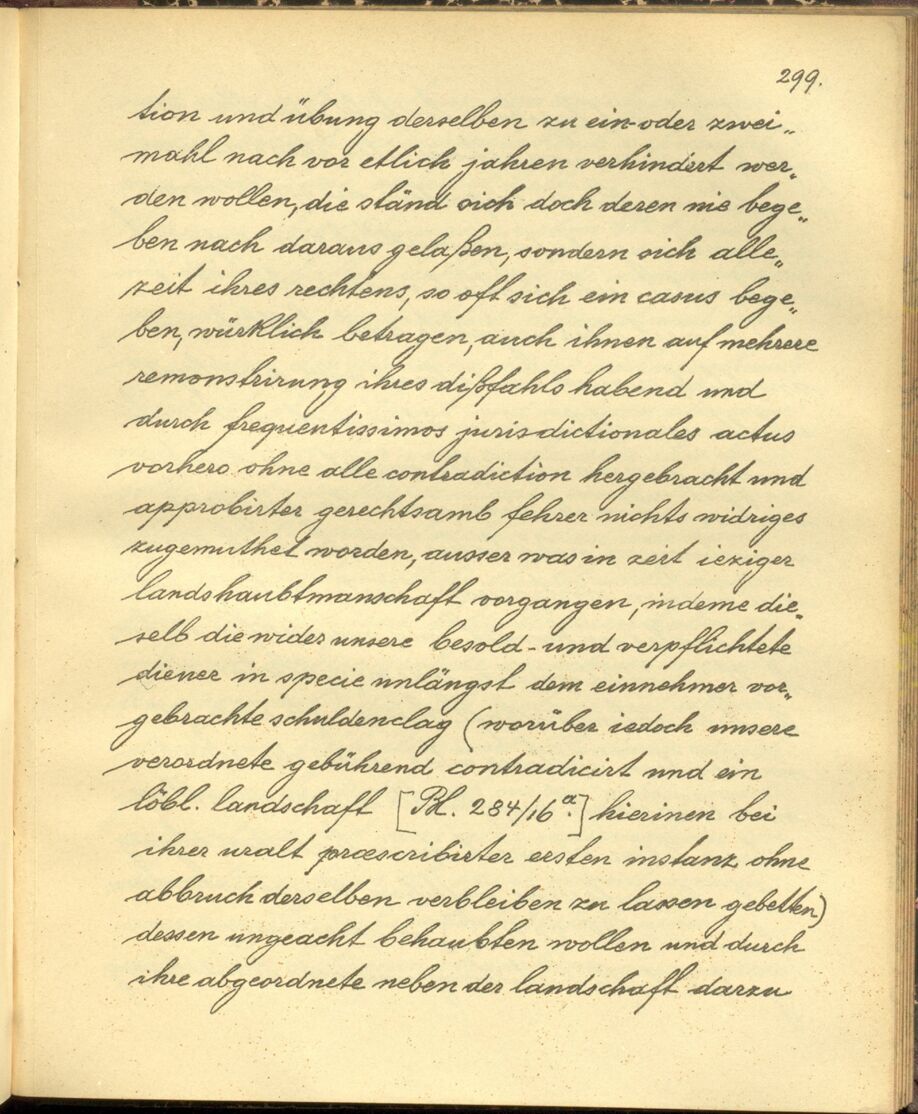 299.
tion und übung derselben zu ein-oder zwei„
mahl nach vor etlich jahren verhindert wer„
den wollen, die ständ sich doch deren nie bege„
ben nach daraus gelaßen, sondern sich alle„
zeit ihres rechtens, so oft sich ein casus bege„
ben, würklich betragen, auch ihnen auf mehrere
remonstrirung ihres dißfahls habend und
durch frequentissimos juris-dictionales actus
vorhero ohne alle contradiction hergebracht und
approbirter gerechtsamb fehrer nichts widriges
zugemuthet worden, ausser was in zeit ieziger
landshaubtmanschaft vorgangen, indeme die„
selb die wider unsere besold- und verpflichtete
diener in specie unlängst dem einnehmer vor„
gebrachte schuldenclag (worüber iedoch unsere
verordnete gebührend contradicirt und ein
löbl. landschaft [Bl. 284/16a.] hierinen bei
ihrer uralt præscribirter ersten instanz ohne
abbruch derselben verbleiben zu lassen gebetten)
dessen ungeacht behaubten wollen und durch
ihre abgeordnete neben der landschaft darzu